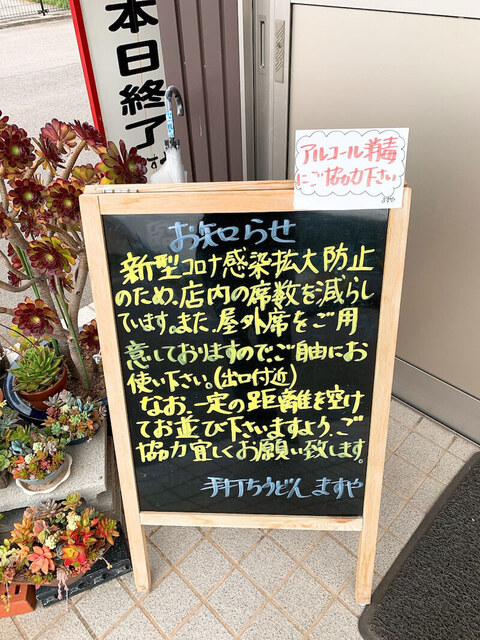 本日終了
アルコール消毒
にご協力下さい
ますや
お知らせ
新型コロナ感染拡大防止
のため、店内の席数を減らし
ています。また、屋外席をご用
意しておりますのでご自由にお
使い下さい。(出口付近)
なお、一定の距離を空け
てお並び下さいますよう、ご
協力宜しくお願い致します。
手打ちうどん ますや